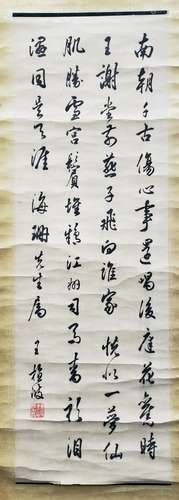 南朝千古傷心事還唱後庭花舊時
王謝堂前燕子飛向誰家恍似一夢仙
肌勝雪宮鬢堆鴉江州司馬青衫淚
濕同是天涯 海珊先生屬
王植波